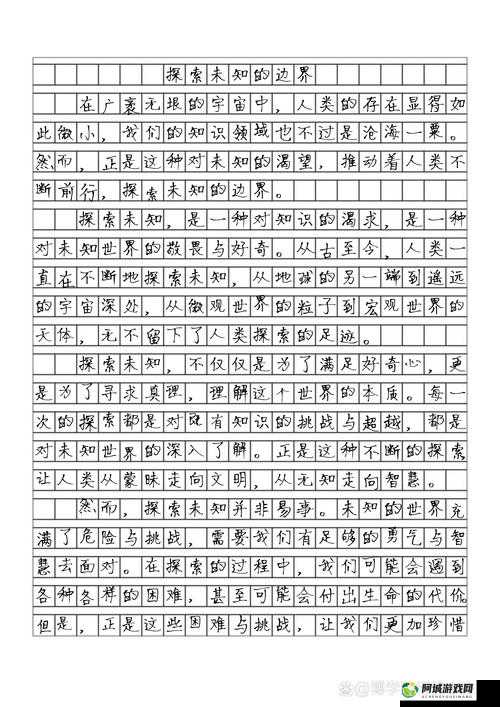 探索未知的边界
在广袤无垠的宇宙中，人类的存在显得如
此微小，我们的知识领域也不过是沧海一粟。
然而，正是这种对未知的渴望，推动着人类不
断前行，探索未知的边界。
探索未知，是一种对知识的渴求，是一种
对未知世界的敬畏与好奇。从古至今，人类一
直在不断地探索未知，从地球的另一端到遥远
的宇宙深处，从微观世界的粒子到宏观世界的
天体，无不留下了人类探索的足迹。
探索未知，不仅仅是为了满足好奇心，更
是为了寻求真理，理解这个世界的本质。每一
次的探索都是对既有知识的挑战与超越，都是
对未知世界的深入了解。正是这种不断的探索
让人类从蒙昧走向文明，从无知走向智慧。
然而，探索未知并非易事。未知的世界充
满了危险与挑战，需要我们有足够的勇气与智
慧去面对。在探索的过程中，我们可能会遇到
各种各样的困难，甚至可能会付出生命的代价。
但是，正是这些困难与挑战，让我们更加珍惜
@博学
阿城游戏网